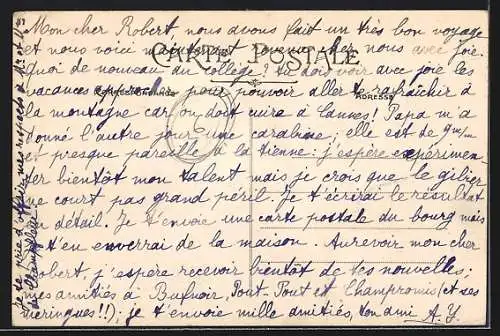 CARTE POSTALE
CORRESPONDANCE
ADRESSE
Mon cher Robert nous avons fait un très bon voyage
et nous voici maintenant revenu chez nous avec joie.
Quoi de nouveau du collège? tu dois voir avec joie les
vacances approcher pour pouvoir aller te rafraîchir à
la montagne car on doit cuire à Cannes! Papa m'a
donné l'autre jour une carabine; elle est de 9m/m
et presque pareille à la tienne. j'espère expérimen
ter bientôt mon talent mais je crois que le gibier
ne court pas grand péril. Je t'écrirai le résultat
en détail. Je t'envoie une carte postale du bourg mais
t'en enverrai de la maison. Au revoir mon cher
Robert, j'espère recevoir bientôt de tes nouvelles;
mes amitiés à Bufnoir, Pout-Pout et Champromis (et ses
meringues!!); je t'envoie mille amitiés, ton ami A.Y.
Je te prie d'offrir mes respects à Mr et